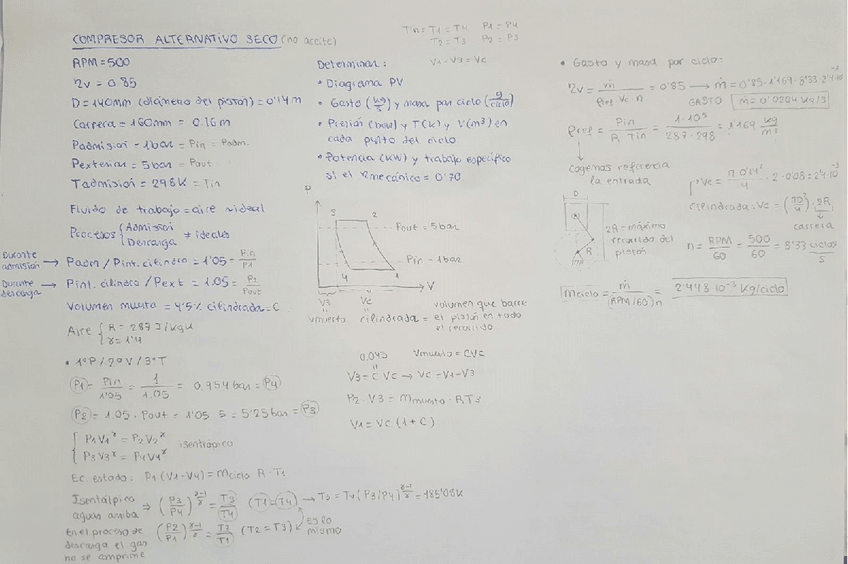 COMPRESOR ALTERNATIVO SECO (no aceite)
RPM = 500
ηv = 0.85
D = 140mm (diámetro del pistón) = 0'14 m
Carrera = 160mm = 0.16 m
Padmisión = 1bar = Pin = Padm.
Pexterior = 5bar = Pout
Tadmisión = 298K = Tin
Fluido de trabajo = aire ≠ ideal
Procesos { Admisión Descarga ≠ ideales
Durante admisión → Padm / Pint. cilindro = 1'05 = Pin/P1
Durante descarga → Pint. cilindro / Pext = 1.05 = P2/Pout
Volumen muerto = 4'5% cilindrada = C
Aire { R = 287 J/kgK γ = 1'4
• 1º P / 2º V / 3º T
P1 = Pin/1'05 = 1/1.05 = 0.954 bar = P4
P2 = 1.05 · Pout = 1'05 · 5 = 5'25 bar = P3
{ P1V1^γ = P2V2^γ
P3V3^γ = P4V4^γ isentrópico
Ec. estado: P1 (V1-V4) = mciclo R · T1
Isentálpico aguas arriba ⇒ (P3/P4)^(γ-1/γ) = T3/T4 (T1=T4) → T3 = T4 (P3/P4)^(γ-1/γ) = 485'08K
En el proceso de descarga el gas no se comprime (P2/P1)^(γ-1/γ) = T2/T1 (T2 = T3) Es lo mismo
Tin = T1 = T4 P1 = P4
T2 = T3 P2 = P3
V1 - V3 = Vc
Determinar:
• Diagrama PV
• Gasto (kg/s) y masa por ciclo (g/ciclo)
• Presión (bar) y T(K) y V(m³) en
cada punto del ciclo
• Potencia (KW) y trabajo específico
si el ηmecánico = 0'70
P
3 2
Pout = 5 bar
Pin = 1 bar
4 1
V
V3 Vc
Vmuerto cilindrada = volumen que barre
el pistón en todo
el recorrido
0.045 Vmuerto = CVc
V3 = C Vc → Vc = V1 - V3
P2 · V3 = Mmuerto · RT3
V1 = Vc (1 + C)
• Gasto y masa por ciclo:
ηv = ṁ / ρref Vc · n = 0'85 → ṁ = 0'85 · 1'169 · 8'33 · 2'4·10⁻³
GASTO ṁ = 0'0204 kg/s
ρref = Pin / R Tin = 1·10⁵ / 287·298 = 1'169 kg/m³
Cogemos referencia
la entrada
Vc = π 0'14² / 4 · 2 · 0'08 = 2'4·10⁻³
cilindrada = Vc = (πD²/4) · 2R
carrera
D
2R = máximo
recorrido del
pistón
R
n = RPM/60 = 500/60 = 8'33 ciclos/s
Mciclo = ṁ / (RPM/60) n = 2'448 · 10⁻³ kg/ciclo